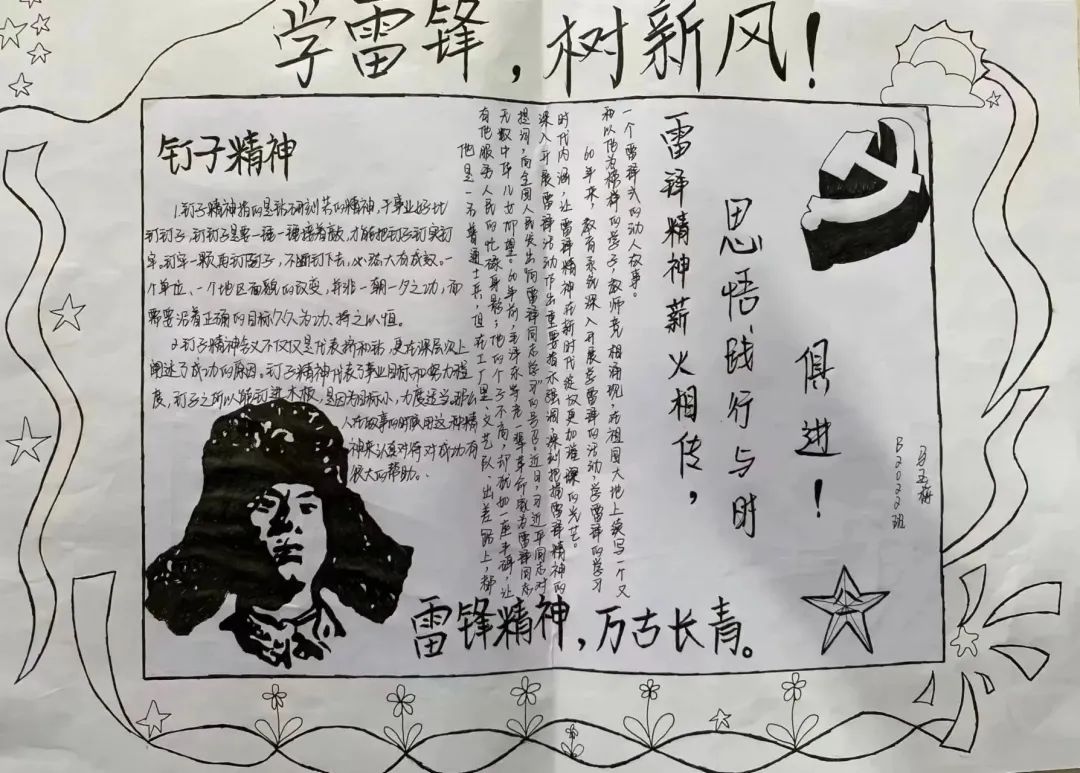 学雷锋,树新风!
钉子精神
1.钉子精神指的是钻研刻苦的精神,干事业好比
钉钉子,钉钉子是要一锤一锤接着敲,才能把钉子钉实钉
牢,钉牢一颗再钉
不断钉下去,必然大有成效。一
个单位、一个地区面貌的改变,并非一朝一夕之功,而
需要沿着正确的目标久久为功、持之以恒。
2.钉子精神含义不仅仅是代表挤和钻,更在深层次上
阐述了成功的原因。钉子精神代表了事业目标和努力程
度,钉子之所以能钉进木板,是因为目标小,力度适当。那么
人在做事的时候用这种精
神来认真对待对成功有
很大的帮助。
他是一个普通士兵,但在工厂里、文艺队、出差路上,都
有他服务人民的忙碌身影;他的个子不高,却犹如一座丰碑,让
无数中华儿女仰望。60年前,毛泽东等老一辈革命家为雷锋同志
题词,向全国人民发出“向雷锋同志学习”的号召。近日,习近平同志对
深入开展雷锋活动作出重要指示强调深刻把握雷锋精神的
时代内涵,让雷锋精神在新时代绽放更加璀璨的光芒。
60年来,教育系统深入开展学雷锋的活动,学雷锋的学习
和以他为榜样的学子,教师竞相涌现,在祖国大地上续写一个又
一个雷锋式的动人故事。
雷锋精神薪火相传,
思悟践行与时
俱进!
B2022班
雷锋精神,万古长青。